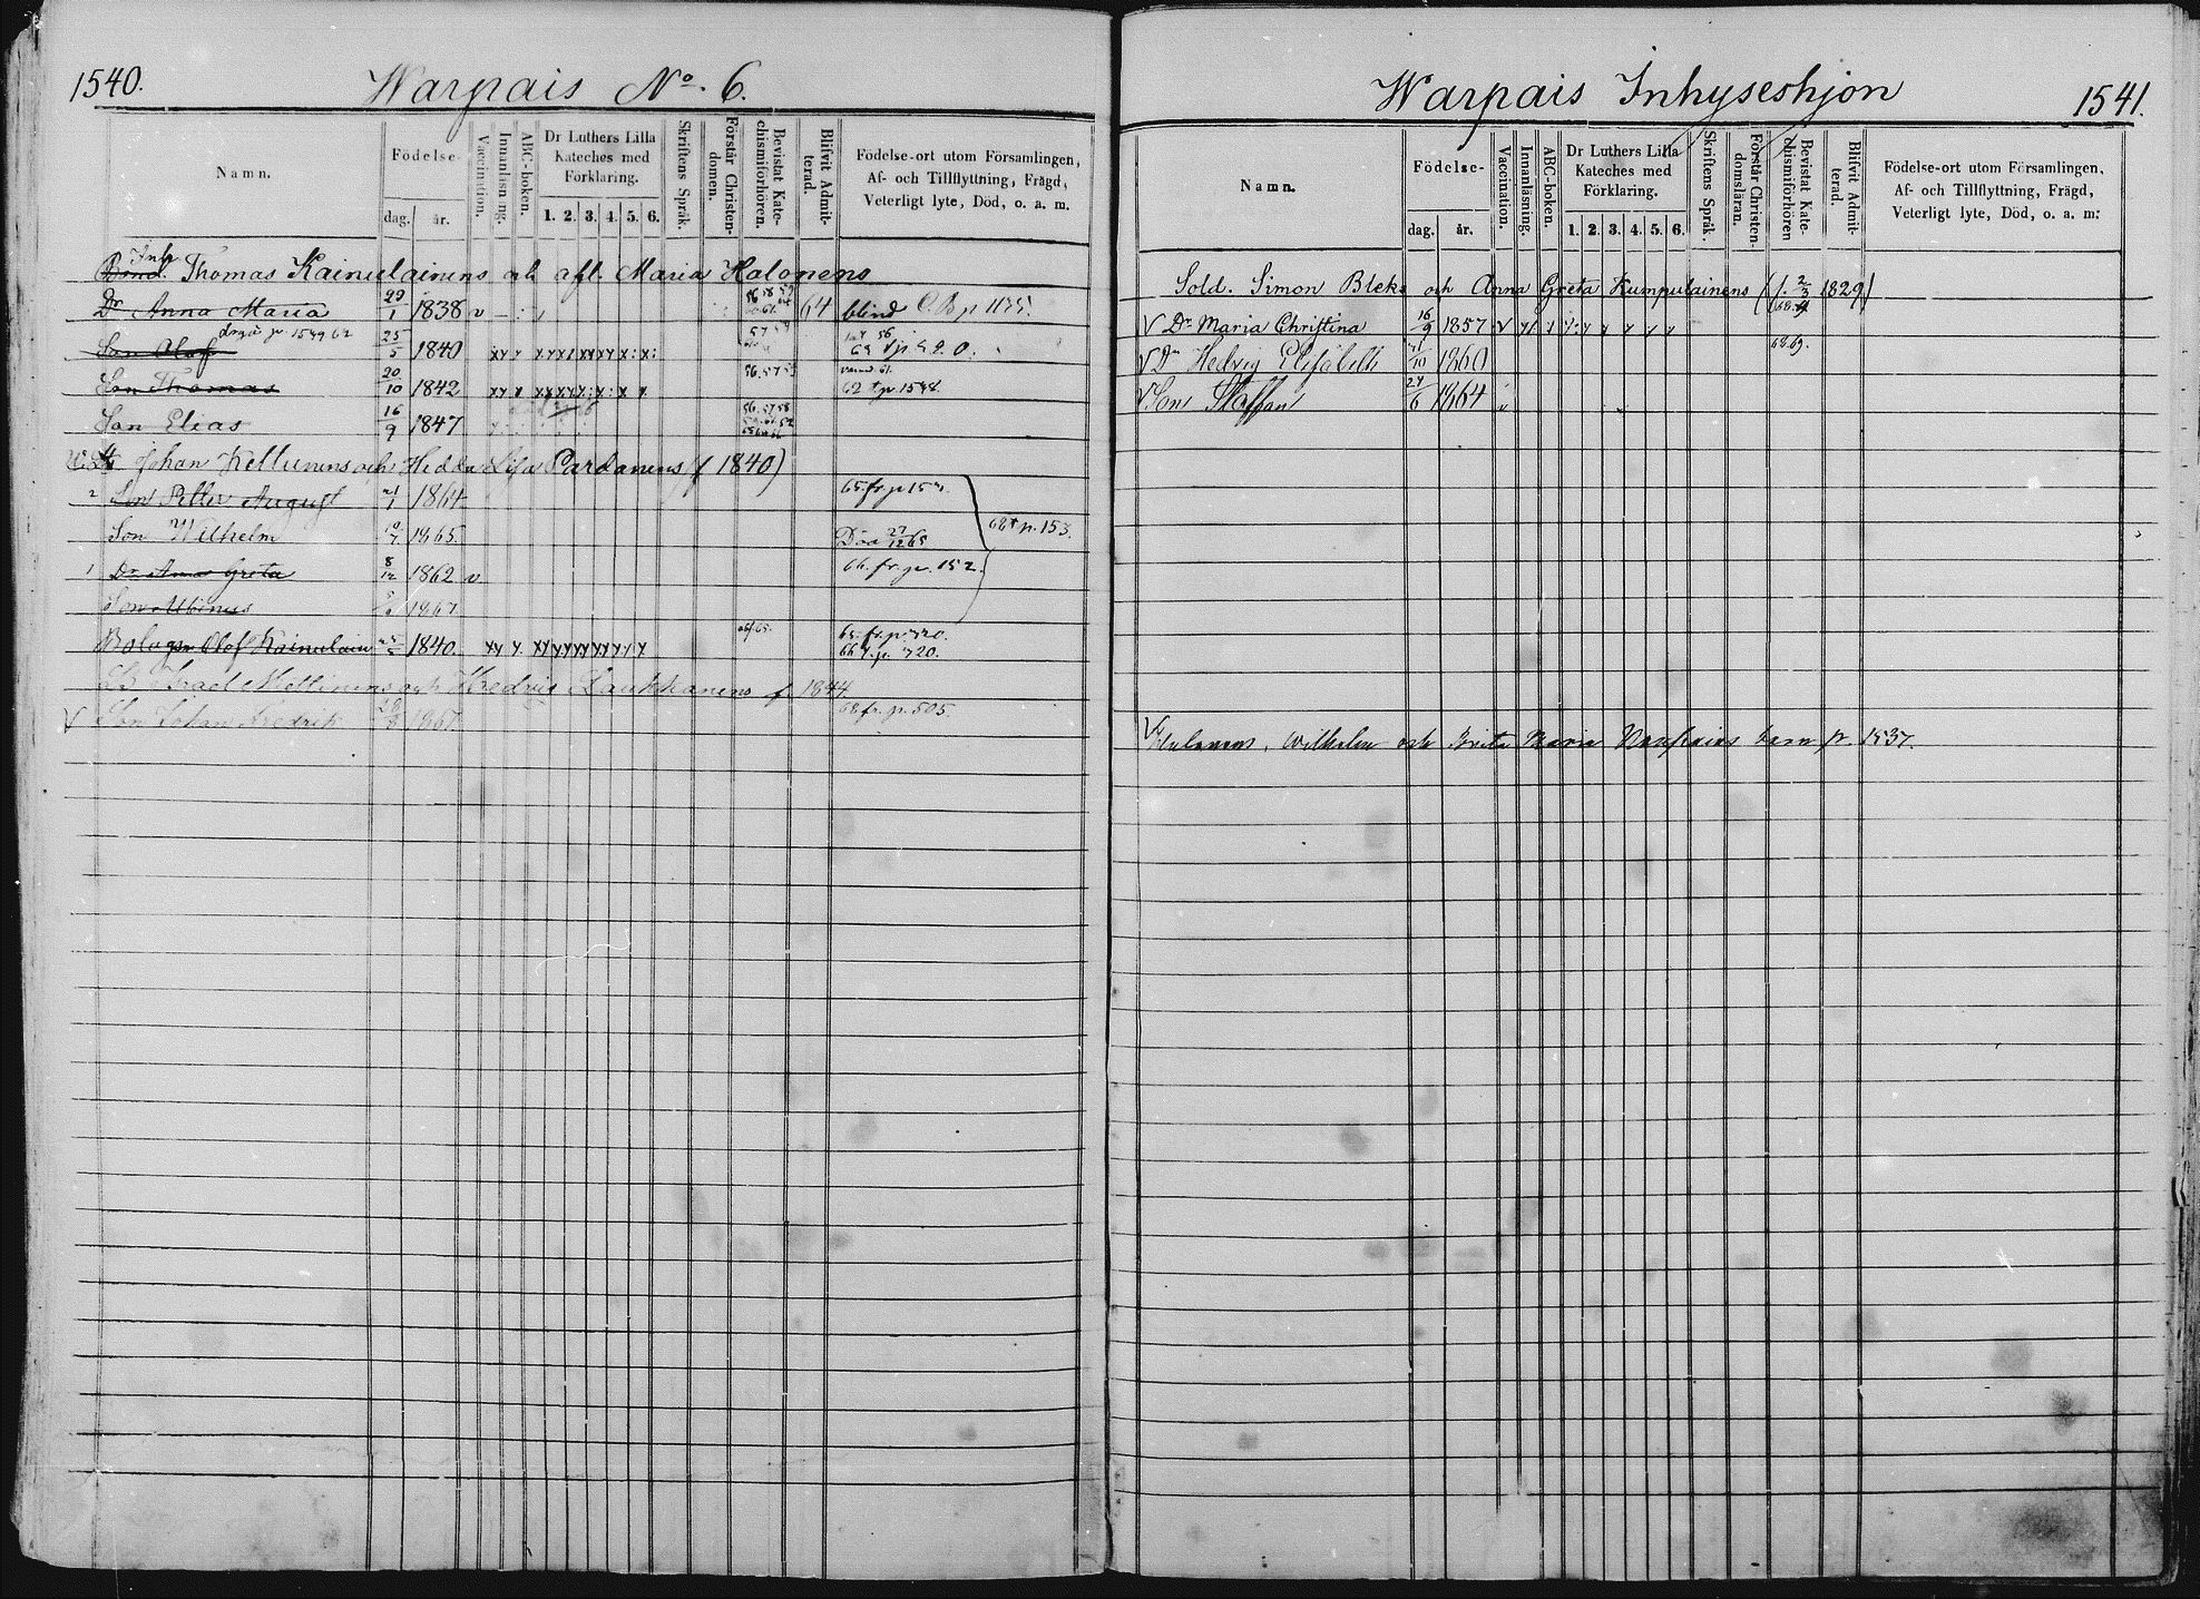 1540.
Warpais No. 6.
Namn.
Födelse-
dag.
år.
Vaccination.
Innanläsning.
ABC-boken.
Dr Luthers Lilla
Kateches med
Förklaring.
1. 2. 3. 4. 5. 6.
Skriftens Språk.
Förstår Christen-
domen.
Bevistat Kate-
chismiförhören.
Blifvit Admit-
terad.
Födelse-ort utom Församlingen,
Af- och Tillflyttning, Frägd,
Veterligt lyte, Död, o. a. m.
Inh.
Bond. Thomas Kainulainens och afl. Maria Halonens
Dr Anna Maria 29/1 1838 v 64 blind
Son Olof 25/5 1840
Son Thomas 20/10 1842 62 p 1548.
Son Elias 16/9 1847 56.57.58
Johan Kellunens och Hedda Lisa Pardanens (f 1840)
2 Son Petter August 1864
Son Wilhelm 1865. Död 27/12 65
68 p. 153.
1 Dr Anna Greta 8/12 1862 v 66. fr. p. 152.
Son Albinus 1867
Bolagsm Olof Kainulain 1840. 65. fr. p. 720.
66 t. p. 720.
Israel Mellinens och Hedvig Laukkanens f. 1844
V Son Johan Fredrik 1867. 68 fr. p. 505.
Warpais Inhyseshjon
1541.
Namn.
Födelse-
dag.
år.
Vaccination.
Innanläsning.
ABC-boken.
Dr Luthers Lilla
Kateches med
Förklaring.
1. 2. 3. 4. 5. 6.
Skriftens Språk.
Förstår Christen-
domsläran.
Bevistat Kate-
chismiförhören
Blifvit Admit-
terad.
Födelse-ort utom Församlingen,
Af- och Tillflyttning, Frägd,
Veterligt lyte, Död, o. a. m:
Sold. Simon Bleks och Anna Greta Kumpulainens (f. 2/3 1829)
V Dr Maria Christina 16/9 1857 v
V Dr Hedvig Elisabeth 1860 68.69.
V Son Staffan 24/6 1864
Wilhelm och Brita Maria barn p. 1537.